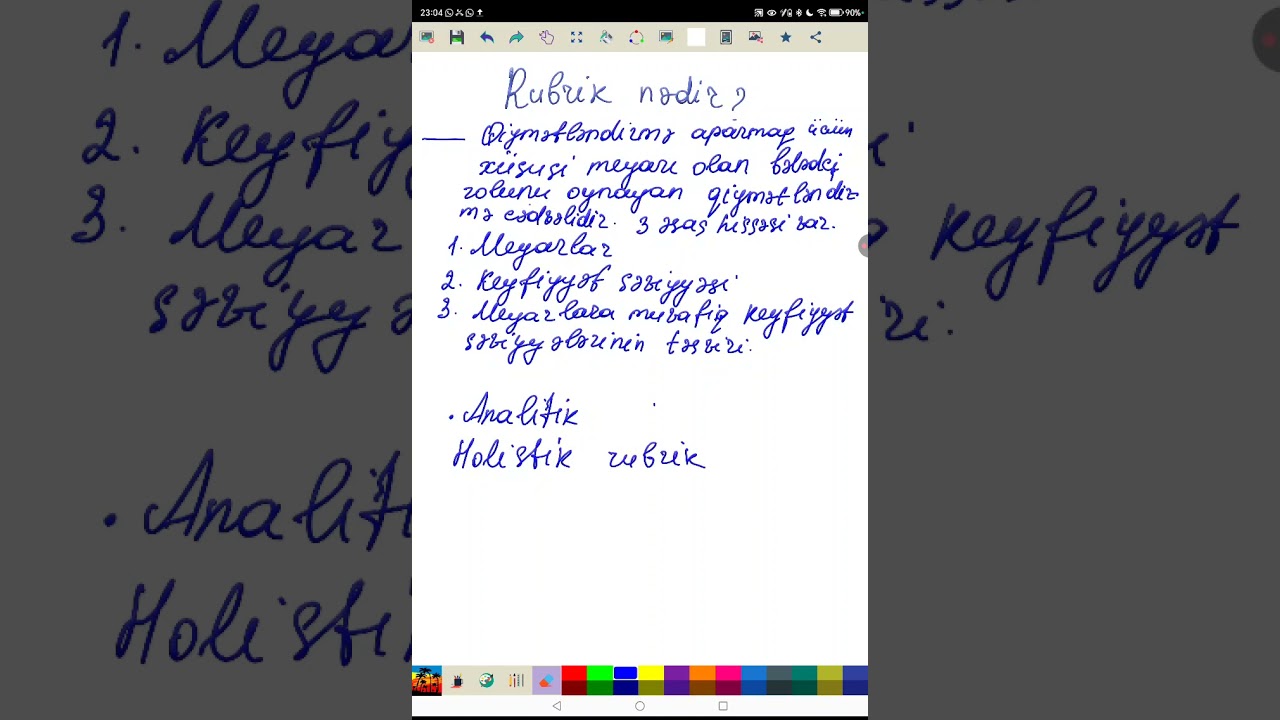 23:04
90%
Rubrik nədir?
Qiymətləndirmə aparmaq üçün
xüsusi meyarı olan bələdçi
rolunu oynayan qiymətləndir-
mə cədvəlidir. 3 əsas hissəsi var.
1. Meyarlar
2. Keyfiyyət səviyyəsi
3. Meyarlara müvafiq keyfiyyət
səviyyələrinin təsviri.
• Analitik
Holistik rubrik